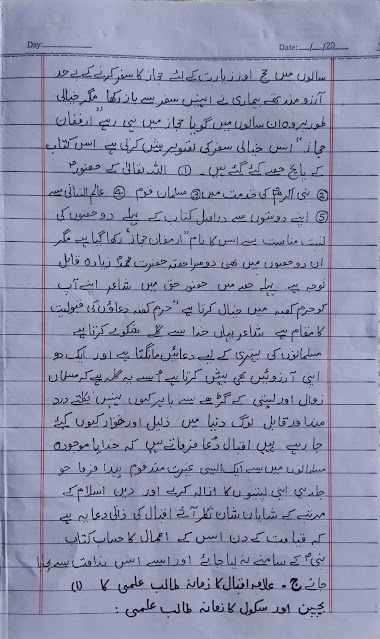 Day: Date: __/__/20
سالوں میں حج اور زیارت کے لئے حجاز کا سفر کرنے کے بے حد
آرزو مند تھے بیماری نے انہیں سفر سے باز رکھا مگر خیالی
طور پر وہ ان سالوں میں گویا حجاز میں ہی رہے "ارمغان
حجاز" اس خیالی سفر کی تصویر پیش کرتی ہے اس کتاب
کے پانچ حصے کئے گئے ہیں۔ ① اللہ تعالیٰ کے حضور
② نبی اکرمؐ کی خدمت میں ③ مسلمان قوم ④ عالم انسانی سے
⑤ اپنے دوستوں سے دراصل کتاب کے پہلے دو حصوں کی
نسبت مناسبت سے اس کا نام "ارمغان حجاز" رکھا گیا ہے مگر
ان دو حصوں میں بھی دوسرا حصہ حضرت محمدؐ زیادہ قابل
توجہ ہے پہلے حصہ میں حضور حق میں شاعر اپنے آپ
کو حرم کعبہ میں خیال کرتا ہے "حرم کعبہ دعاؤں کی قبولیت
کا مقام ہے شاعر یہاں خدا سے گلے شکوے کرتا ہے
مسلمانوں کی بہتری کے لیے دعائیں مانگتا ہے اور ایک دو
اپنی آرزوئیں بھی پیش کرتا ہے اسے یہ گلہ ہے کہ مسلمان
زوال اور پستی کے گڑھے سے باہر کیوں نہیں نکلتے درد
مند اور قابل لوگ دنیا میں ذلیل اور خوار کیوں کئے
جا رہے ہیں اقبال دعا فرماتے ہیں کہ خدایا موجودہ
مسلمانوں میں سے ایک ایسی غیرت مند قوم پیدا فرما جو
جلد ہی اپنی پستیوں کا ازالہ کرے اور دین اسلام کے
مرتبے کے شایان شان نظر آئے اقبال کی ذاتی دعا یہ ہے
کہ قیامت کے دن اس کے اعمال کا حساب کتاب
نبیؐ کے سامنے نہ لیا جائے اور اسے اس ندامت سے بچایا
جائے ج۔ علامہ اقبال کا زمانہ طالب علمی کا (i)
بچپن اور سکول کا زمانہ طالب علمی :